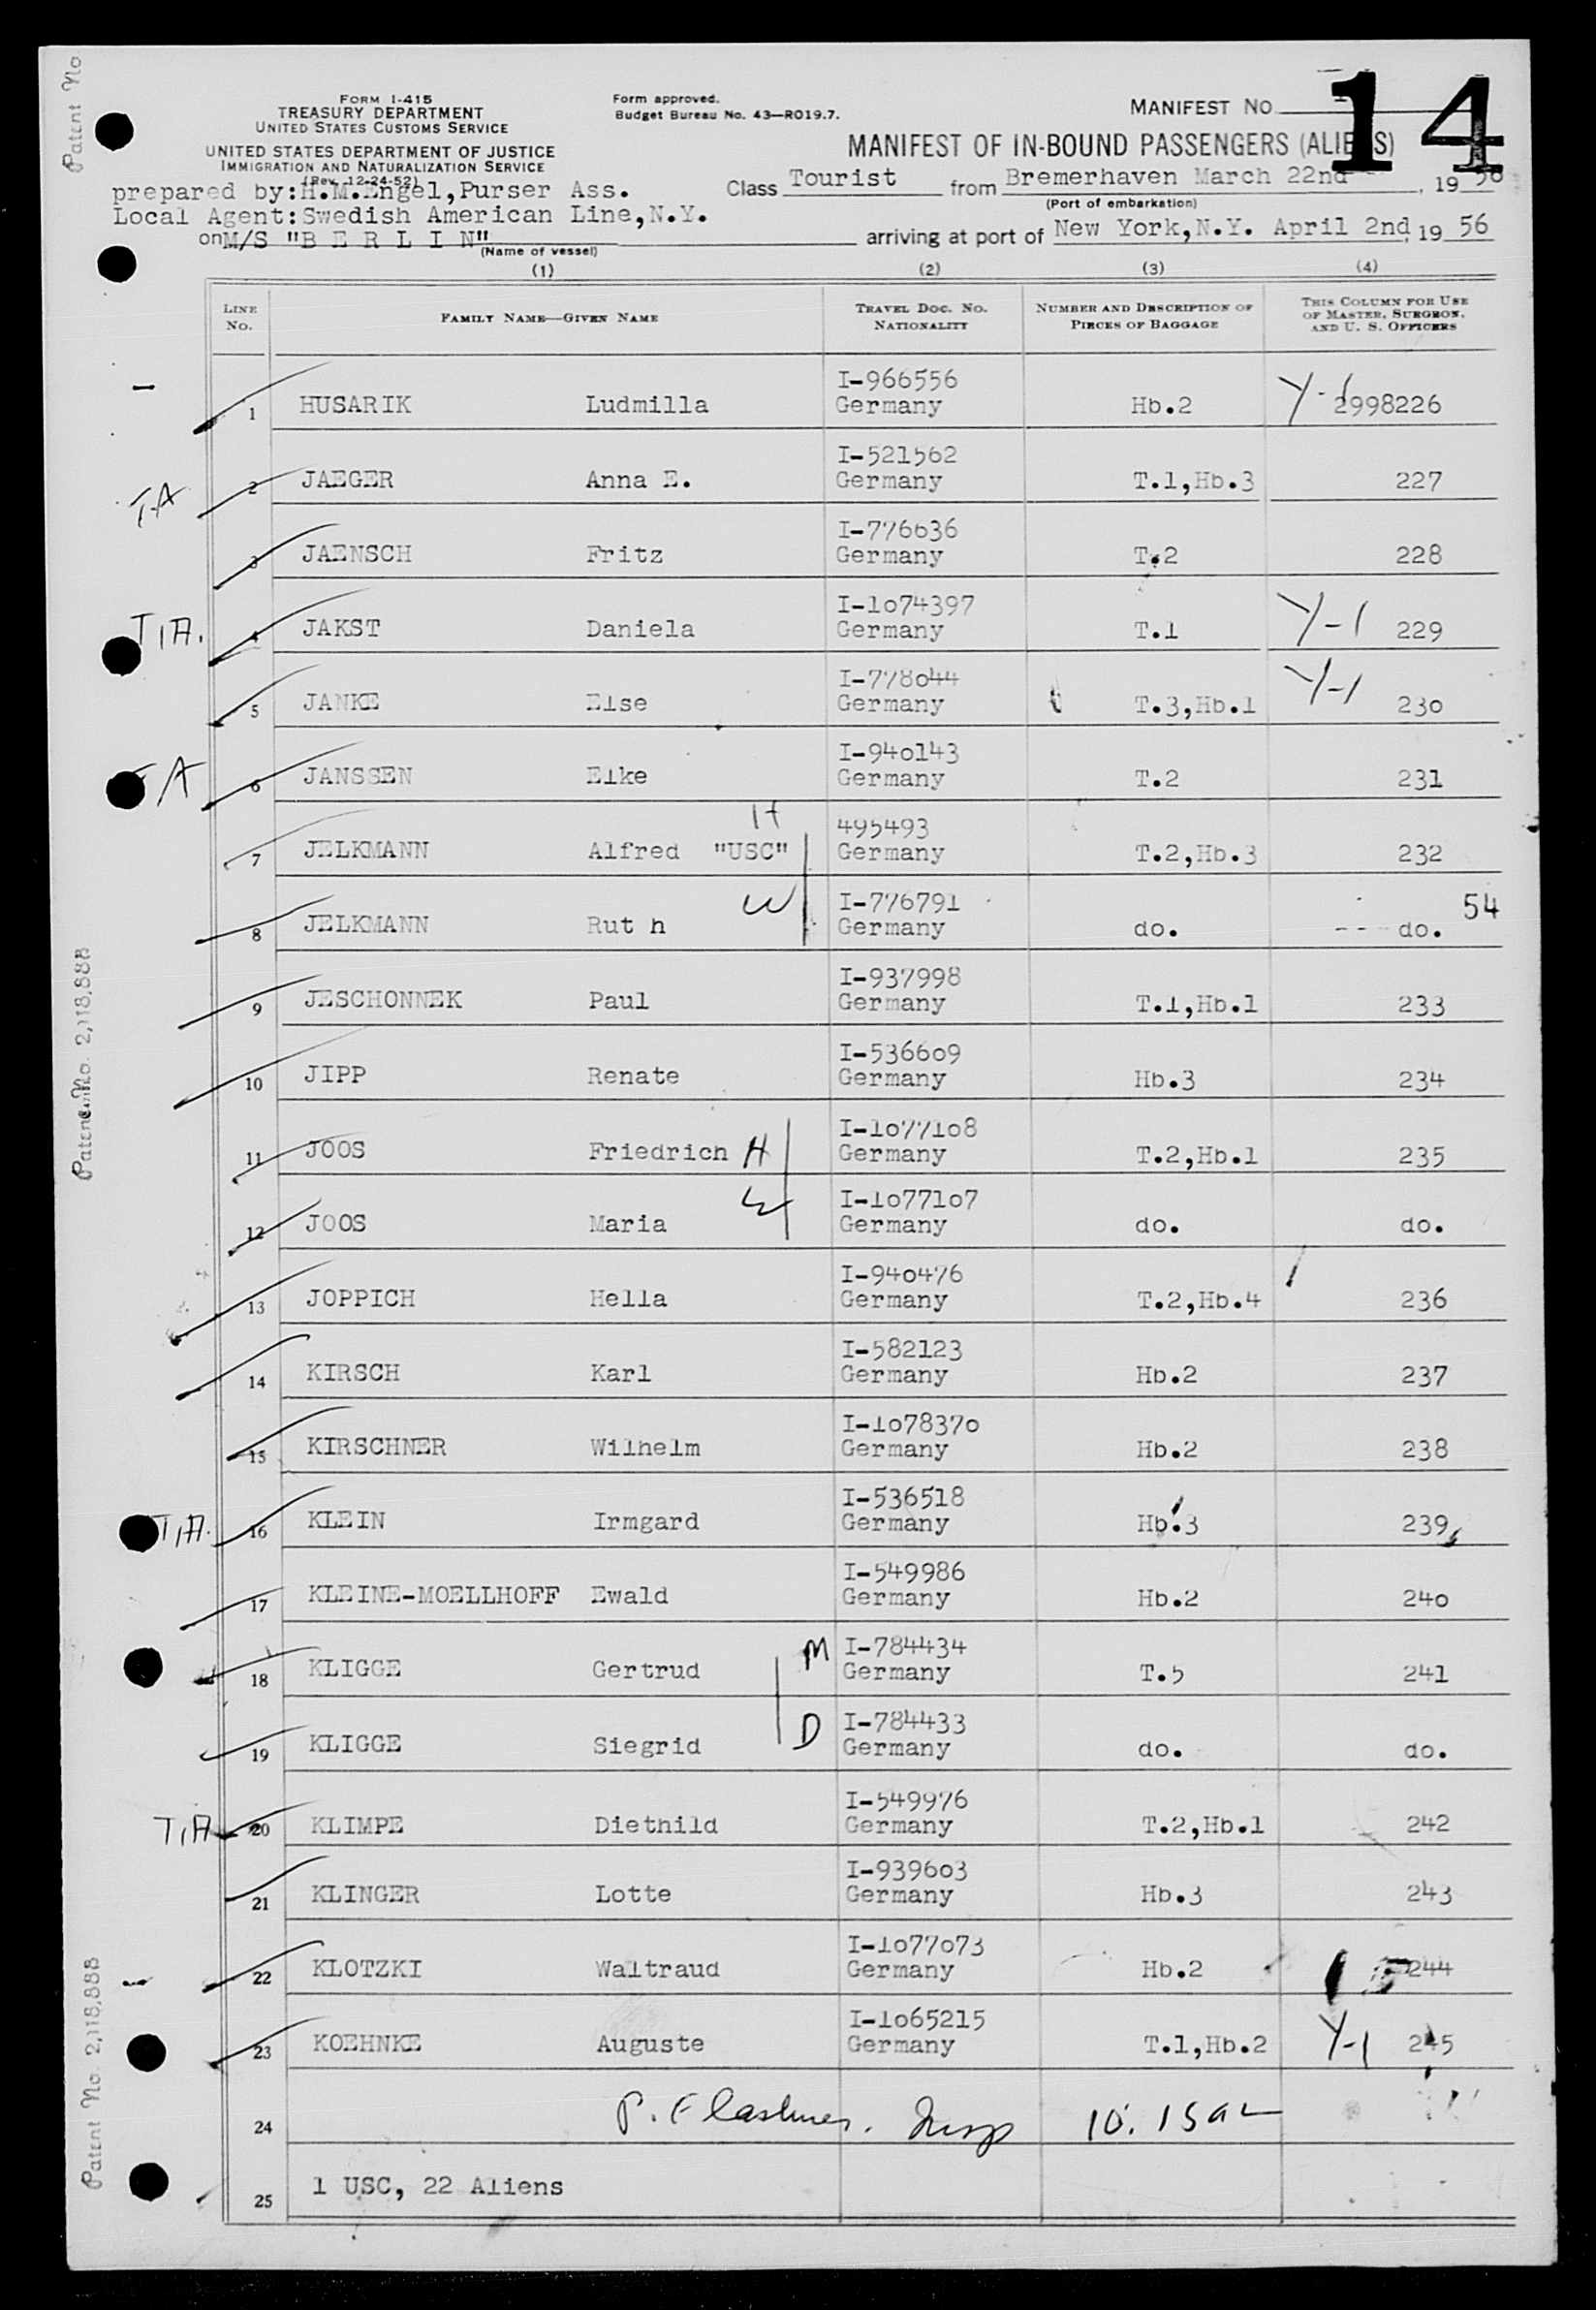 Patent No
14
FORM I-415
TREASURY DEPARTMENT
UNITED STATES CUSTOMS SERVICE
UNITED STATES DEPARTMENT OF JUSTICE
IMMIGRATION AND NATURALIZATION SERVICE
(Rev. 12-24-52)
Form approved.
Budget Bureau No. 43—RO19.7.
MANIFEST NO.
MANIFEST OF IN-BOUND PASSENGERS (ALIENS)
prepared by:H.M.Engel,Purser Ass.
Class Tourist from Bremerhaven March 22nd, 19 56
(Port of embarkation)
Local Agent:Swedish American Line,N.Y.
on M/S "B E R L I N" arriving at port of New York,N.Y. April 2nd, 19 56
(Name of vessel)
(1) (2) (3) (4)
LINE NO. FAMILY NAME—GIVEN NAME TRAVEL DOC. NO. NATIONALITY NUMBER AND DESCRIPTION OF PIECES OF BAGGAGE THIS COLUMN FOR USE OF MASTER, SURGEON, AND U. S. OFFICERS
I-966556
1 HUSARIK Ludmilla Germany Hb.2 2998226
I-521562
T-A 2 JAEGER Anna E. Germany T.1,Hb.3 227
I-776636
3 JAENSCH Fritz Germany T.2 228
I-1074397
T,A. 4 JAKST Daniela Germany T.1 Y-1 229
I-778044
5 JANKE Else Germany T.3,Hb.1 Y-1 230
I-940143
A 6 JANSSEN Elke Germany T.2 231
H 495493
7 JELKMANN Alfred "USC" Germany T.2,Hb.3 232
W I-776791 54
8 JELKMANN Rut h Germany do. --- do.
I-937998
9 JESCHONNEK Paul Germany T.1,Hb.1 233
I-536609
10 JIPP Renate Germany Hb.3 234
I-1077108
11 JOOS Friedrich H Germany T.2,Hb.1 235
W I-1077107
12 JOOS Maria Germany do. do.
I-940476
13 JOPPICH Hella Germany T.2,Hb.4 236
I-582123
14 KIRSCH Karl Germany Hb.2 237
I-1078370
15 KIRSCHNER Wilhelm Germany Hb.2 238
I-536518
T,A. 16 KLEIN Irmgard Germany Hb.3 239
I-549986
17 KLEINE-MOELLHOFF Ewald Germany Hb.2 240
M I-784434
18 KLIGGE Gertrud Germany T.5 241
D I-784433
19 KLIGGE Siegrid Germany do. do.
I-549976
T,A 20 KLIMPE Diethild Germany T.2,Hb.1 242
I-939603
21 KLINGER Lotte Germany Hb.3 243
I-1077073
22 KLOTZKI Waltraud Germany Hb.2 244
I-1065215
23 KOEHNKE Auguste Germany T.1,Hb.2 Y-1 245
24 P. Insp 10.15
25 1 USC, 22 Aliens
Patent No. 2,118,888
Patent No. 2,118,888